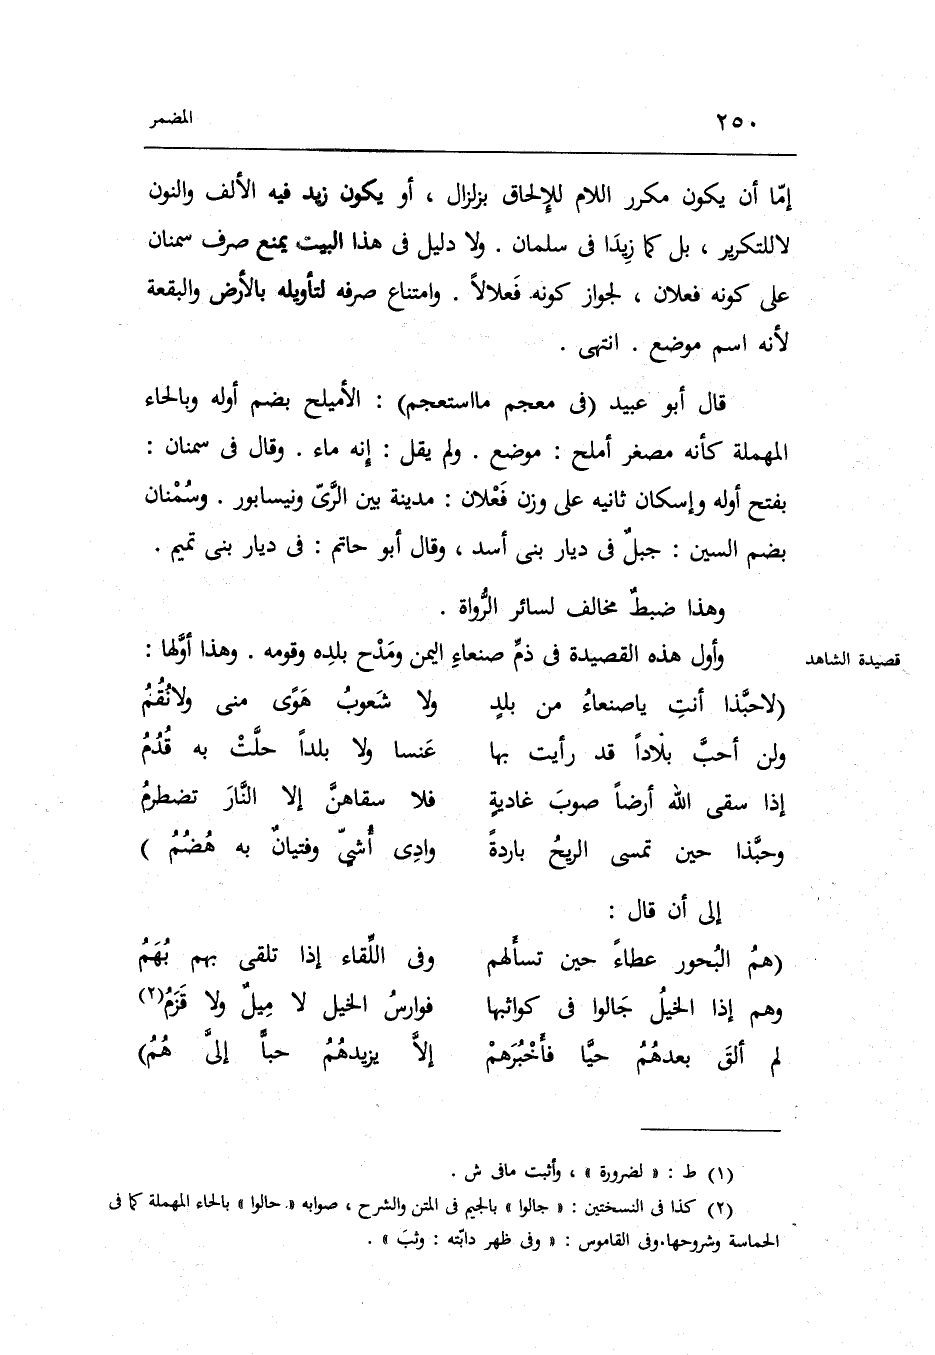 ٢٥٠ المضمر
إمّا أن يكون مكرر اللام للإلحاق بزلزال ، أو يكون زيد فيه الألف والنون
لاللتكرير ، بل كما زِيدَا فى سلمان . ولا دليل فى هذا البيت يمنع صرف سمنان
على كونه فعلان ، لجواز كونه فَعلالاً . وامتناع صرفه لتأويله بالأرض والبقعة
لأنه اسم موضع . انتهى .
قال أبو عبيد (فى معجم مااستعجم) : الأميلح بضم أوله وبالحاء
المهملة كأنه مصغر أملح : موضع . ولم يقل : إنه ماء . وقال فى سمنان :
بفتح أوله وإسكان ثانيه على وزن فَعْلان : مدينة بين الرَّىّ ونيسابور . وسُمْنان
بضم السين : جبلٌ فى ديار بنى أسد ، وقال أبو حاتم : فى ديار بنى تميم .
وهذا ضبطٌ مخالف لسائر الرُّواة .
قصيدة الشاهد وأول هذه القصيدة فى ذمِّ صنعاءِ اليمن ومَدْح بلدِه وقومه . وهذا أوَّلها :
(لاحبَّذا أنتِ ياصنعاءُ من بلدٍ ولا شَعوبُ هَوًى منى ولانُقُمُ
ولن أحبَّ بلاداً قد رأيت بها عَنسا ولا بلداً حلَّتْ به قُدُمُ
إذا سقى الله أرضاً صوبَ غاديةٍ فلا سقاهنَّ إلا النَّارَ تضطرمُ
وحبَّذا حين تمسى الريحُ باردةً وادِى أُشىّ وفتيانٌ به هُضُمُ )
إلى أن قال :
(همُ البُحور عطاءً حين تسألهم وفى اللِّقاء إذا تلقى بهم بُهَمُ
وهم إذا الخيلُ جَالوا فى كواثبها فوارسُ الخيل لا مِيلٌ ولا قَزَمُ(٢)
لم ألقَ بعدهُمُ حيًّا فأَخْبُرَهمْ إلاَّ يزيدهُمُ حباًّ إلىَّ هُمُ)
(١) ط : « لضرورة » ، وأثبت مافى ش .
(٢) كذا فى النسختين : « جالوا » بالجيم فى المتن والشرح ، صوابه « حالوا » بالحاء المهملة كما فى
الحماسة وشروحها. وفى القاموس : « وفى ظهر دابّته : وثبَ » .